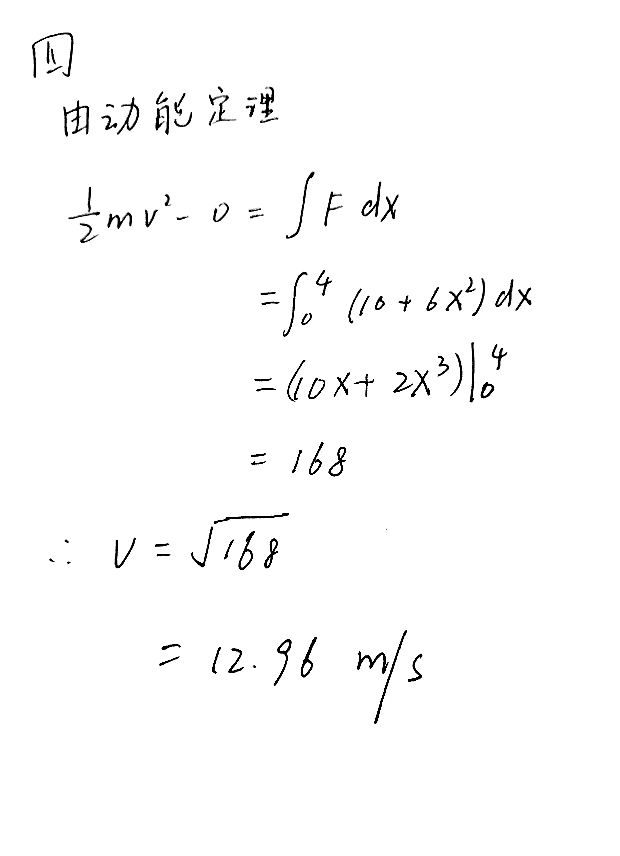 四
由动能定理
½mv² - 0 = ∫F dx
= ∫₀⁴ (10 + 6x²) dx
= (10x + 2x³)|₀⁴
= 168
∴ v = √168
= 12.96 m/s